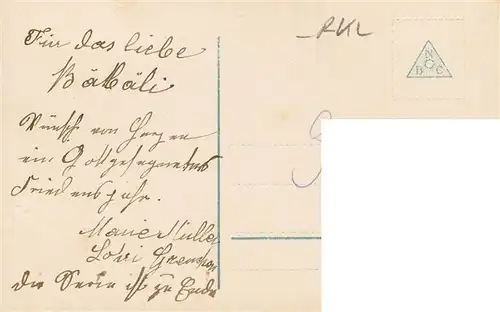 Für das liebe
Bäbäli
Wünsche von Herzen
ein Gottgesegnetes
Friedensjahr.
Marie Müller
die Serie ist zu Ende
RKL
N
B C